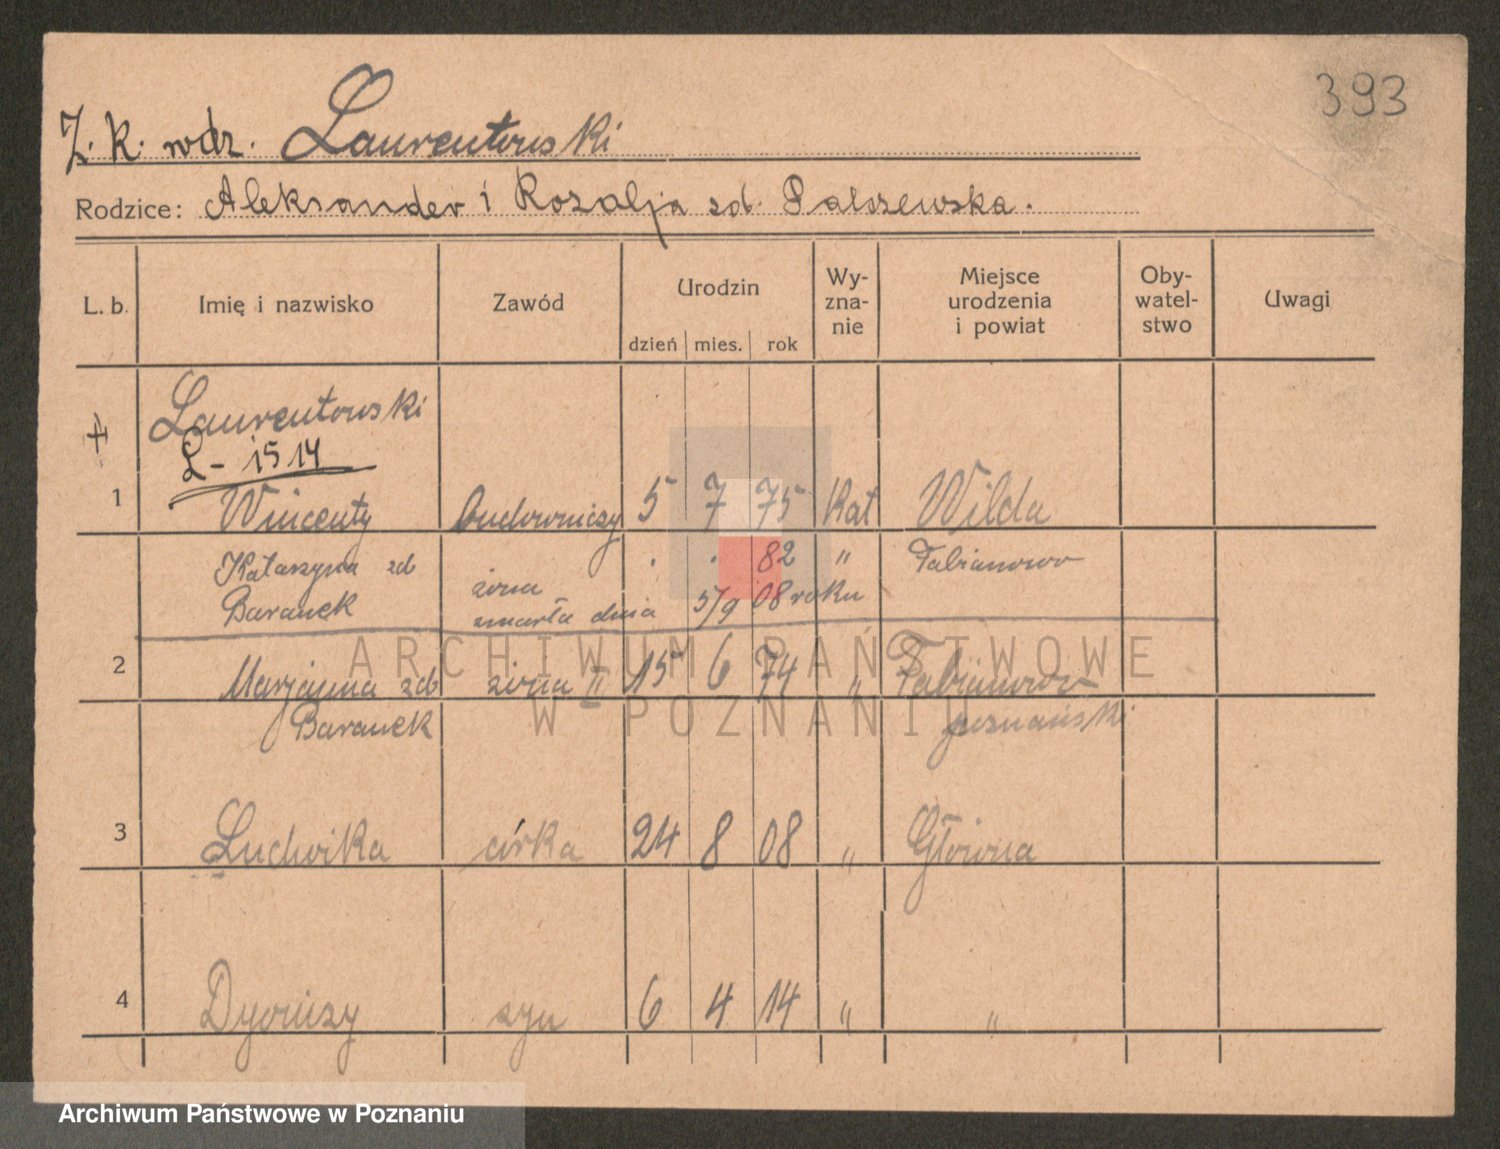 393
Ż. k. wdz. Laurentowski
Rodzice: Aleksander i Rozalja zd. Palszewska.
L. b. Imię i nazwisko Zawód Urodzin dzień mies. rok Wy-zna-nie Miejsce urodzenia i powiat Oby-watel-stwo Uwagi
Laurentowski
L- 1514
1 Wincenty budowniczy 5 7 75 Kat Wilda
Katarzyna zd . . 82 " Fabianowo
Baranek żona
zmarła dnia 5/9 08 roku
2 Marjanna zd żona II 15 6 74 " Fabianowo
Baranek poznański
3 Ludwika córka 24 8 08 " Główna
4 Dyonizy syn 6 4 14 " "
ARCHIWUM PAŃSTWOWE
W POZNANIU
Archiwum Państwowe w Poznaniu